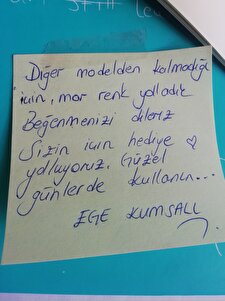 Diğer modelden kalmadığı
için, mor renk yolladık
Beğenmenizi dileriz
Sizin için hediye
yolluyoruz. Güzel
günlerde kullanın...
EGE KUMSALI